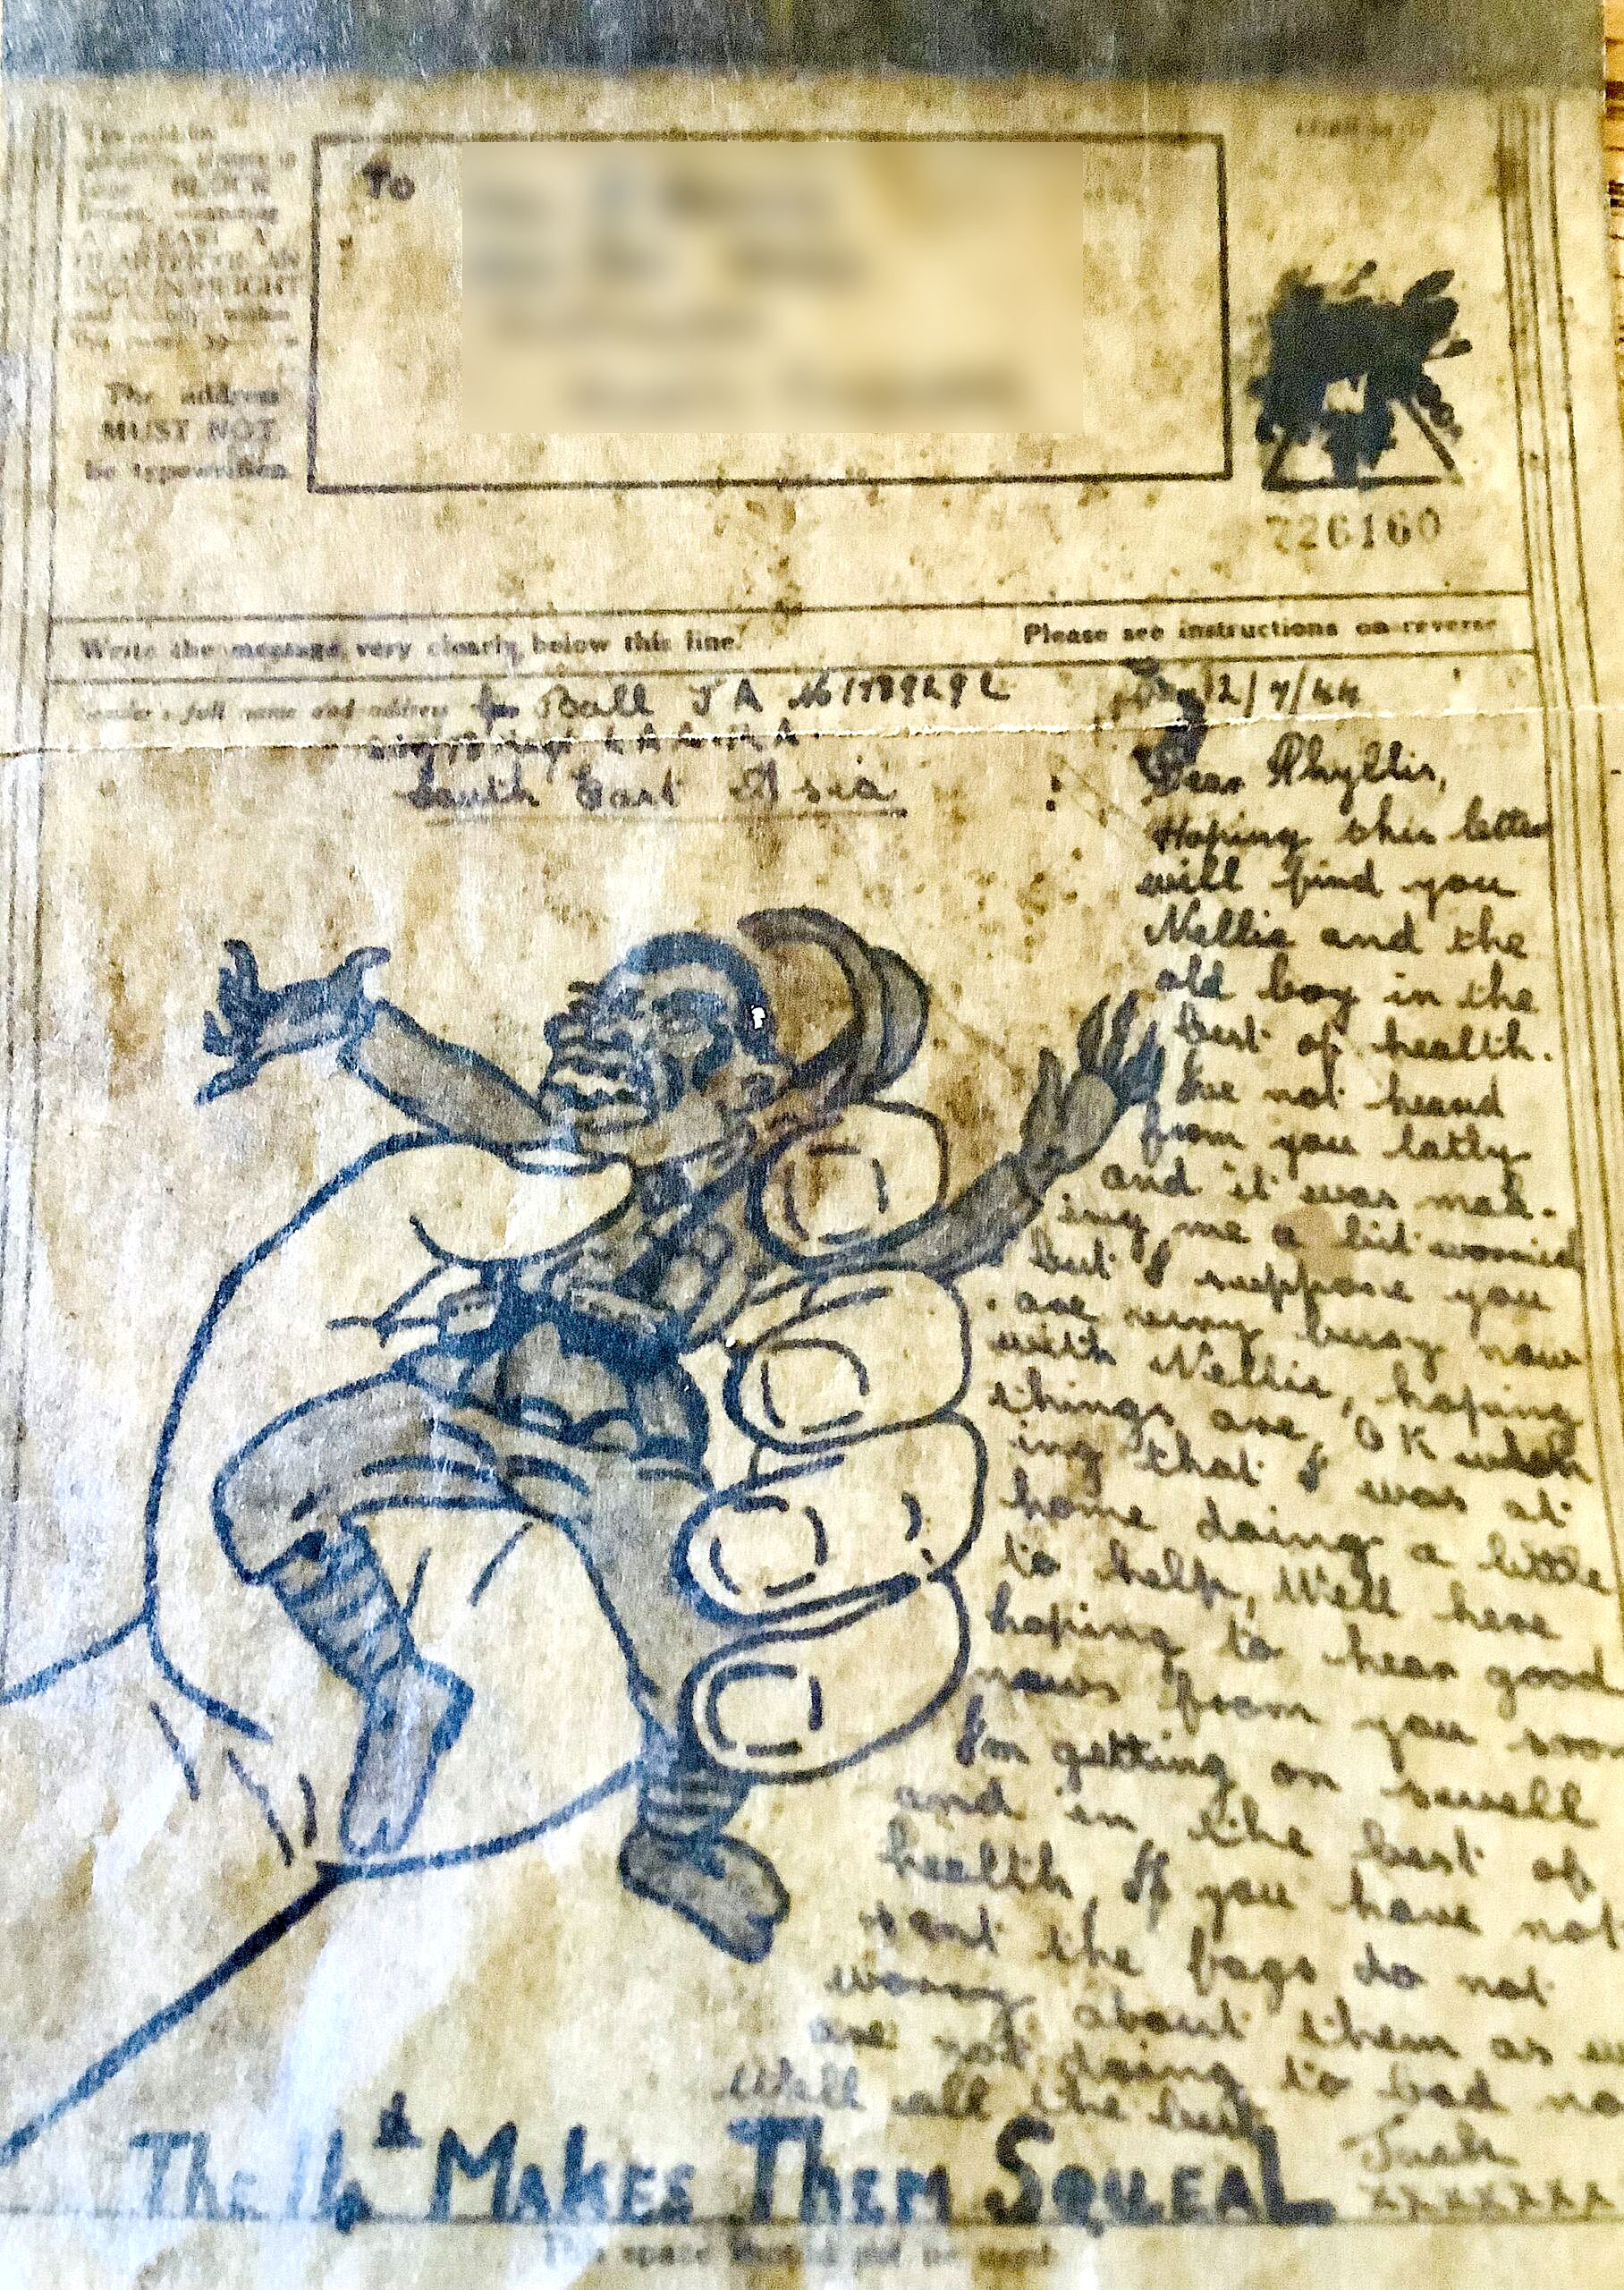 The address
MUST NOT
be typewritten.
To
726160
Write the message very clearly below this line.
Please see instructions on reverse
Sender's full name and address
Ball J A
South East Asia
12/7/44
Dear Phyllis,
Hoping this letter
will find you
Nellie and the
old boy in the
best of health.
I've not heard
from you latly
and it was mak-
ing me a bit worried
but I suppose you
are very busy now
with Nellie, hoping
things are, OK wish
ing that I was at
home doing a little
to help, Well here
hoping to hear good
news from you soon
I'm getting on swell
and in the best of
health, If you have not
sent the fags do not
worry about them as we
are not doing to bad no
Well all the best
Jack
xxxxxxx
The 14th Makes Them Squeal
This space should not be used